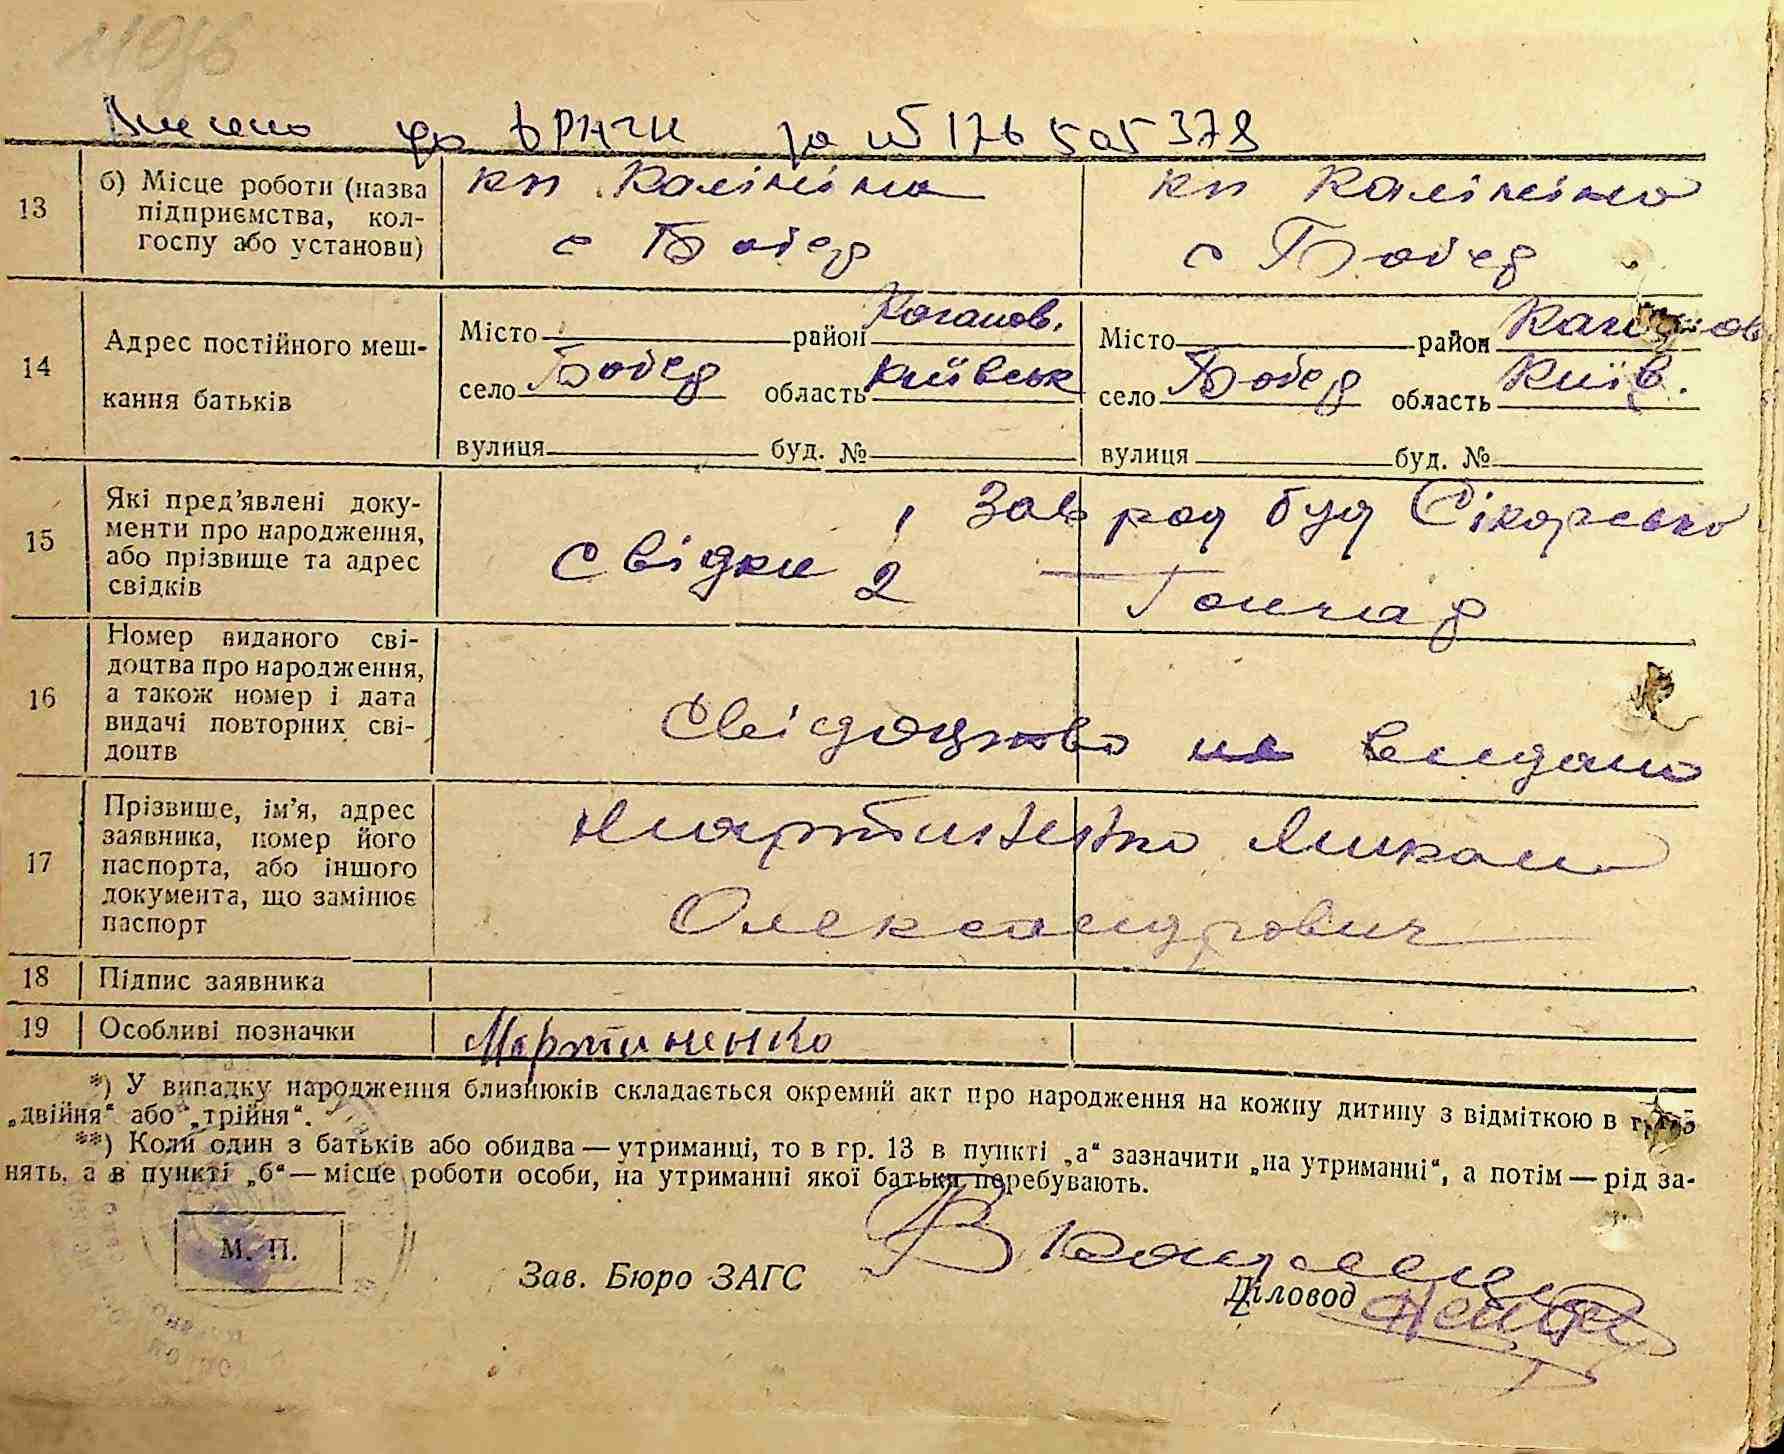 11976
Внесено до ДРАЦС за № 126 505 378
13 б) Місце роботи (назва підприємства, колгоспу або установи) кп Калініна кп Калініна
с Бобер с Бобер
14 Адрес постійного мешкання батьків
Місто район Каганов. Місто район Каганов
село Бобер область Київськ село Бобер область Київ.
вулиця буд. № вулиця буд. №
15 Які пред'явлені документи про народження, або прізвище та адрес свідків
1 Зав род буд Сікорсько
Свідки 2 — Гончар
16 Номер виданого свідоцтва про народження, а також номер і дата видачі повторних свідоцтв
Свідоцтво не видано
17 Прізвише, ім'я, адрес заявника, номер його паспорта, або іншого документа, що замінює паспорт
Мартиненко Микола
Олександрович
18 Підпис заявника
19 Особливі позначки Мартиненко
*) У випадку народження близнюків складається окремий акт про народження на кожну дитину з відміткою в гр. 5
„двійня“ або „трійня“.
**) Коли один з батьків або обидва — утриманці, то в гр. 13 в пункті „а“ зазначити „на утриманні“, а потім — рід за-
нять, а в пункті „б“ — місце роботи особи, на утриманні якої батьки перебувають.
М. П.
Зав. Бюро ЗАГС
Діловод